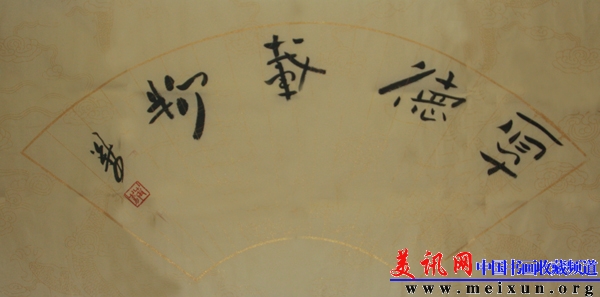 厚德載物
美讯网 中国书画收藏频道
www.meixun.org